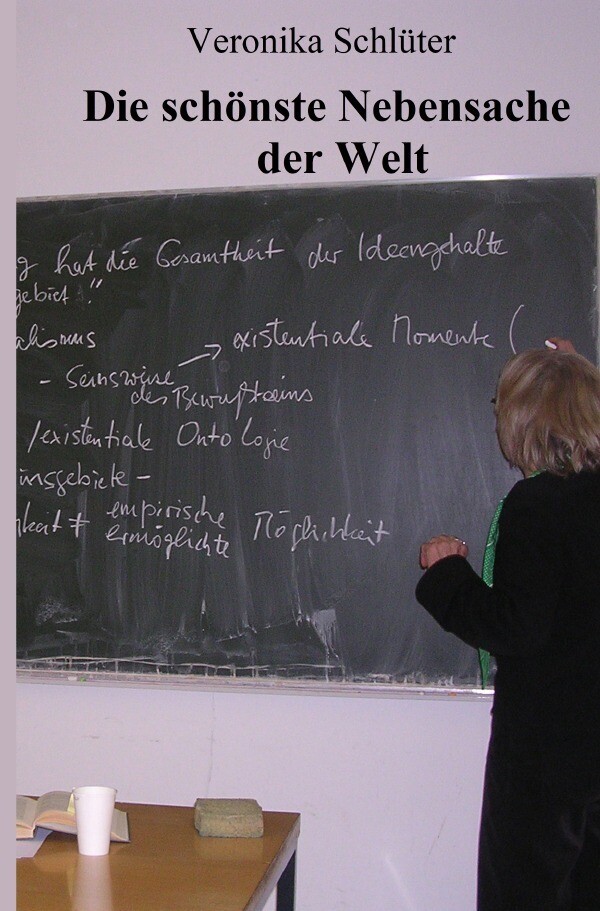 Veronika Schlüter
Die schönste Nebensache
der Welt
g hat die Gesamtheit der Ideengehalte
gebiet."
alismus
existentiale Momente (
- Seinsweise
des Bewußtseins
/existentiale Ontologie
insgebiete -
hkeit ≠ empirische
ermöglichte Möglichkeit